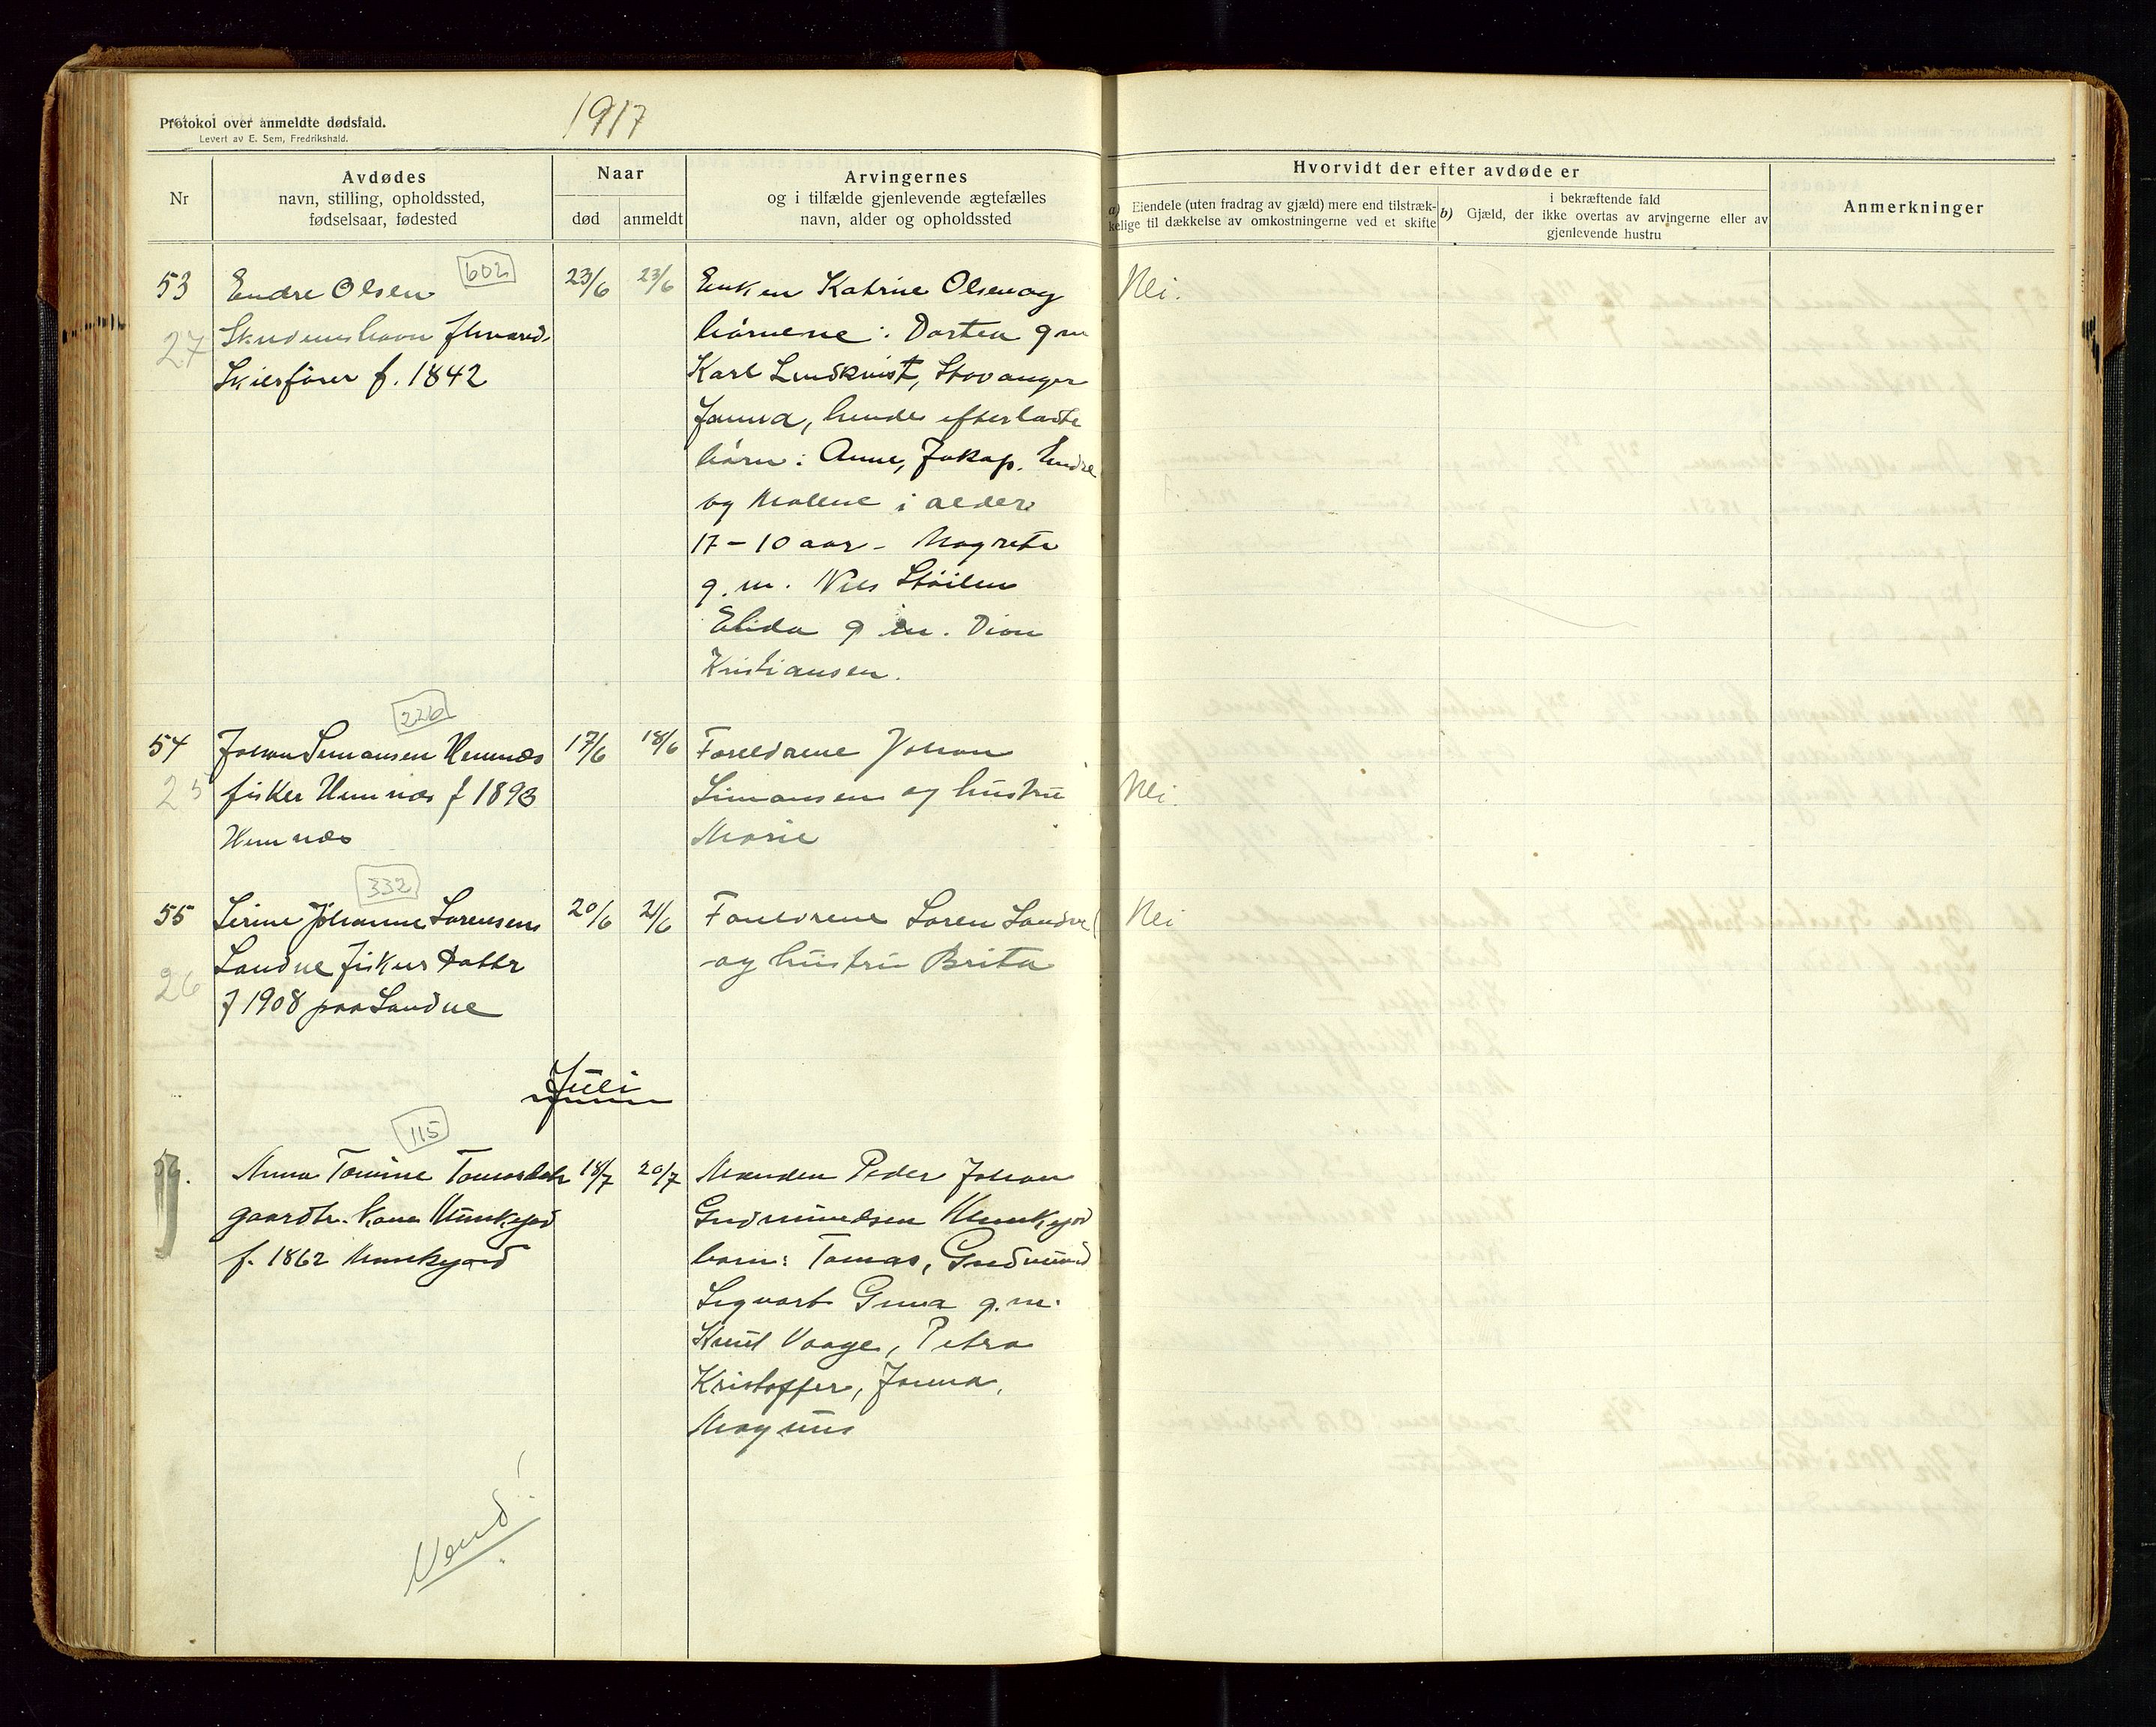 Protokol over anmeldte dødsfald.
Levert av E. Sem, Fredrikshald.
1917
Nr
Avdødes
navn, stilling, opholdssted,
fødselsaar, fødested
Naar
død
anmeldt
Arvingernes
og i tilfælde gjenlevende ægtefælles
navn, alder og opholdssted
Hvorvidt der efter avdøde er
a) Eiendele (uten fradrag av gjæld) mere end tilstræk-
kelige til dækkelse av omkostningerne ved et skifte
b) i bekræftende fald
Gjæld, der ikke overtas av arvingerne eller av
gjenlevende hustru
Anmerkninger
602
53
Endre Olsen
27
Skudeneshavn
f. 1842
23/6
23/6
Enken Katrine Olsen og
børnene: Dortea g m
Karl Lindkvist, Stavanger
Janna, hendes efterladte
børn: Anne, Jakop. Endre
og Malene i alder
17 - 10 aar - Magrete
g. m. Nils Støilen
Elida g m.
Kristiansen.
Nei.
226
54
Johan Simonsen Hemnæs
25
fisker Hemnæs f 1893
Hemnæs
17/6
18/6
Foreldrene Johan
Simonsen og hustru
Marie
Nei.
332
55
Serine Johanne Sørensen
Sandve fiskers datter
26
f 1908 paa Sandve
20/6
21/6
Foreldrene Søren Sandve
og hustru Brita
Nei
Juli
115
Anna Tomine Tomasdatr
gaardbr. kone Munkejord
f. 1862 Munkejord
18/7
20/7
Manden Peder Johan
Gudmundsen Munkejord
børn: Tomas, Gudmund
Sigvart Gina g. m.
Knut Vaage, Petra
Kristoffer, Janna,
Magnus
Vend!